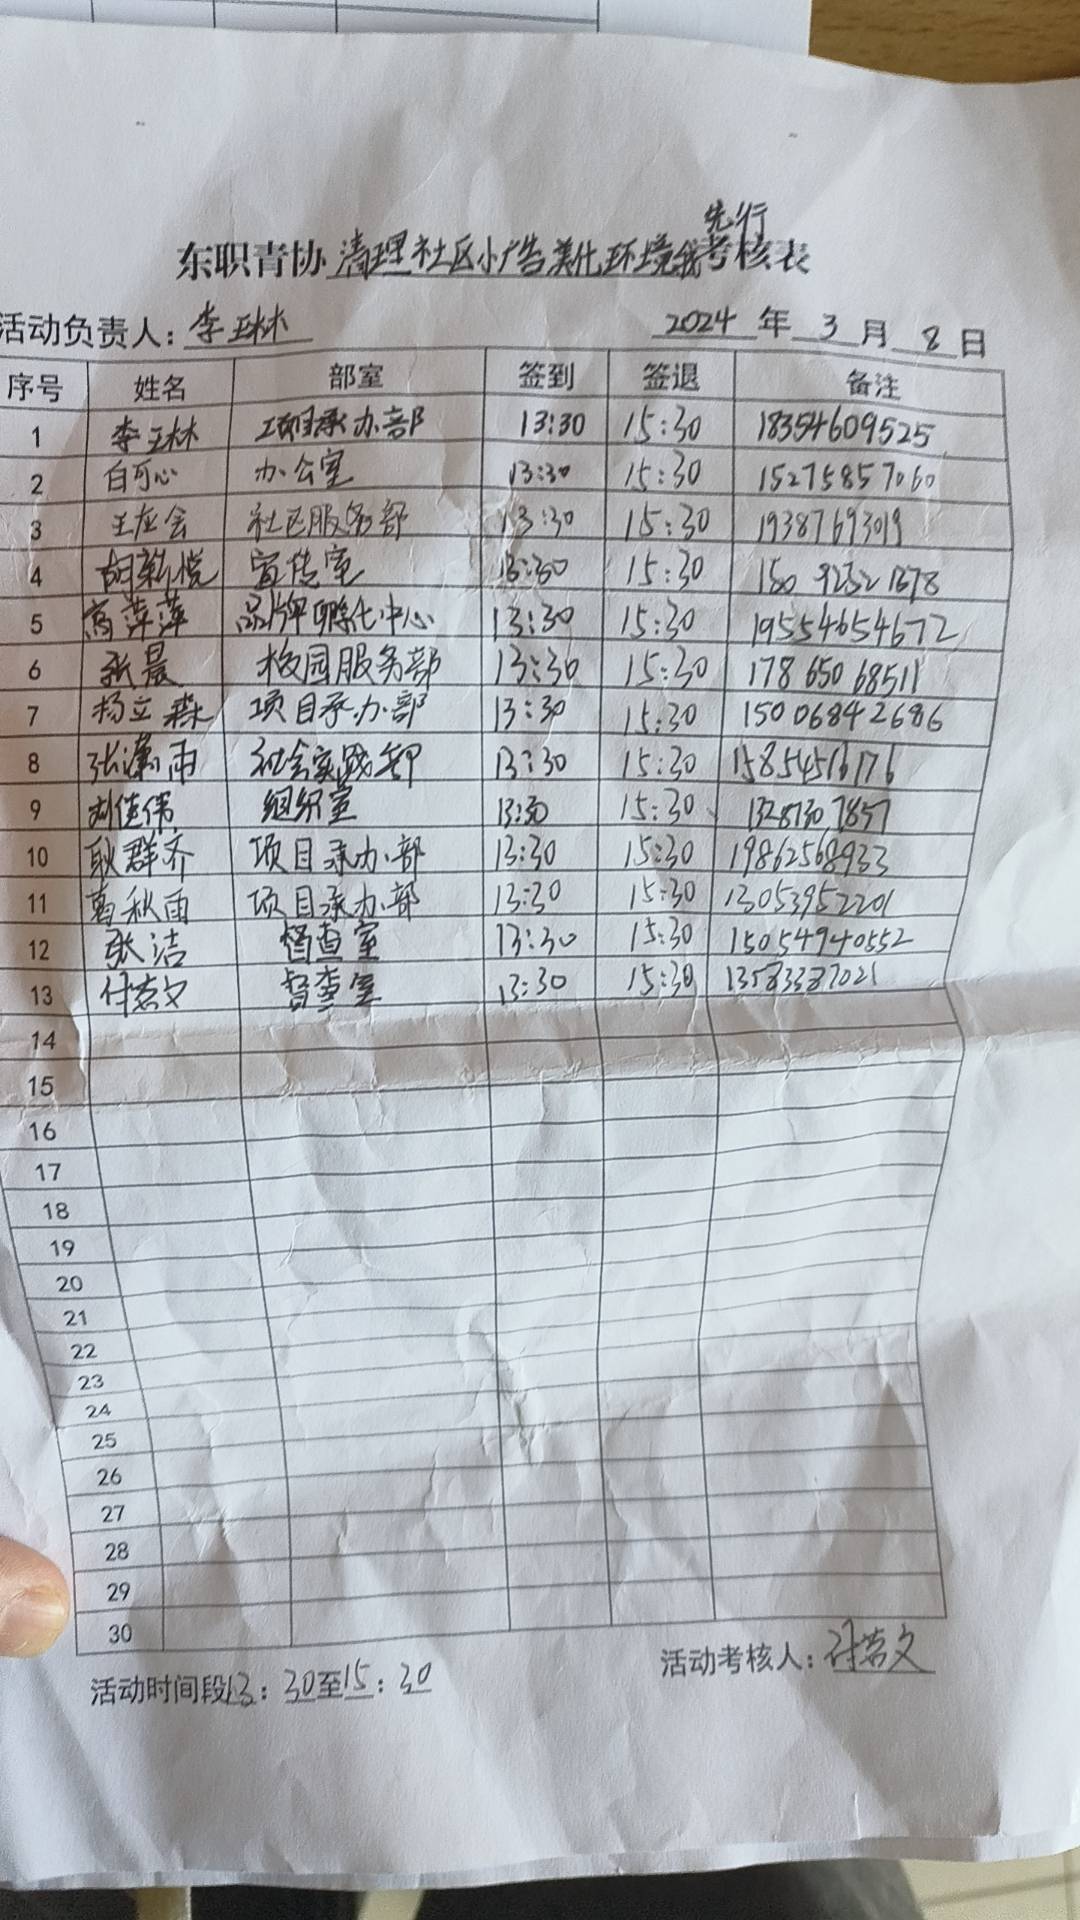 先行
东职青协 清理社区小广告美化环境我考核表
活动负责人：李玉林 2024 年 3 月 8 日
序号 姓名 部室 签到 签退 备注
1 李玉林 项目承办部 13:30 15:30 18354609525
2 白可心 办公室 13:30 15:30 15275857060
3 社区服务部 13:30 15:30 19387693019
4 胡新悦 宣传室 13:30 15:30
5 高萍萍 品牌孵化中心 13:30 15:30 19554654672
6 张晨 校园服务部 13:30 15:30 178 650 68511
7 杨立森 项目承办部 13:30 15:30 15006842686
8 张潇雨 社会实践部 13:30 15:30 15854516176
9 刘佳伟 组织室 13:30 15:30
10 耿群齐 项目承办部 13:30 15:30 19862568933
11 葛秋雨 项目承办部 13:30 15:30 13053952201
12 张洁 督查室 13:30 15:30 15054940552
13 付若文 督查室 13:30 15:30 13583387021
14
15
16
17
18
19
20
21
22
23
24
25
26
27
28
29
30
活动时间段13：30至15：30 活动考核人：付若文